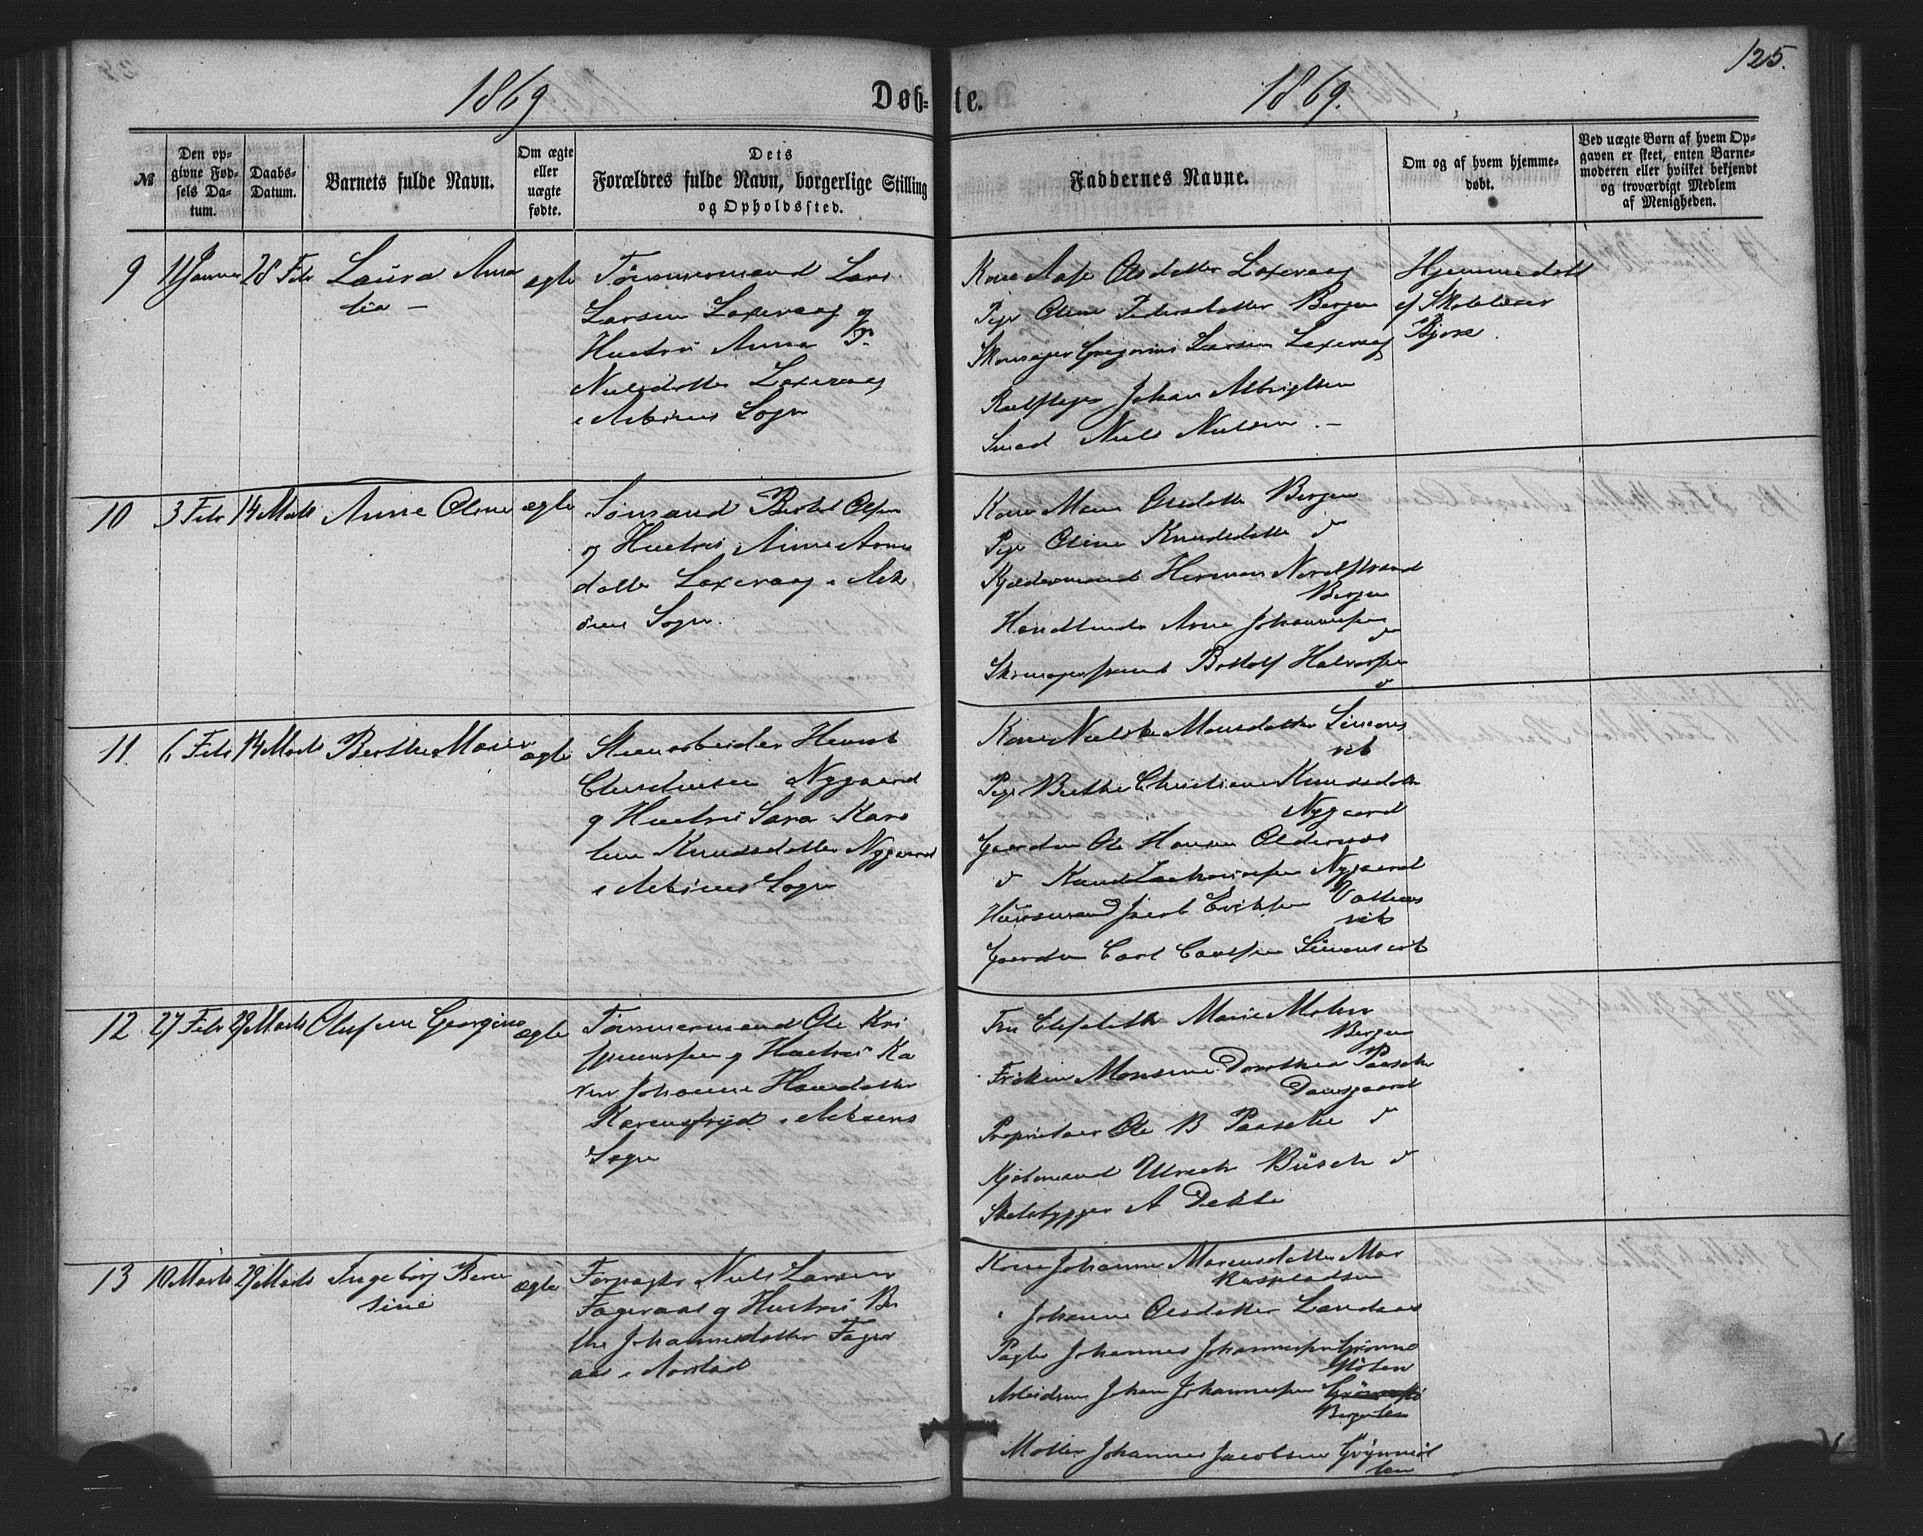 125.
1869
Døb=
te.
1869.
№
Den op=
givne Fød=
sels Da=
tum.
Daabs=
Datum.
Barnets fulde Navn.
Om ægte
eller
uægte
fødte.
Dets
Forældres fulde Navn, borgerlige Stilling
og Opholdssted.
Faddernes Navne.
Om og af hvem hjemme=
døbt.
Ved uægte Børn af hvem Op=
gaven er skeet, enten Barne=
moderen eller hvilket bekjendt
og troværdigt Medlem
af Menigheden.
9
11 Januar
28 Febr
Laura Ama
lia –
ægte
Tømmermand Lars
Larsen Laxevaag og
Hustru Anna P.
Nielsdatter Laxevaag
i Askøens Sogn
Kone Aase Olsdatter Laxevaag
Pige Oline Pedersdatter Bergen
Skomager Gregorius Larsen Laxevaag
Johan Albrigtsen
Smed Niels Nielsen. –
Hjemmedøbt
af Skolelærer
10
3 Febr
14 Marts
Anne Oline
ægte
Sømand Bertel Olsen
og Hustru Anne Arne
datter Laxevaag i Ask
øens Sogn.
Kone Olsdatter Bergen
Pige Oline Knudsdatter
Kjeldermand Herman Nordstrand
Bergen
Arne Johannessen
Botolf Halvorsen
11.
6 Febr
14 Marts
Berthe Marie
ægte
Steenarbeider
Christensen Nygaard
og Hustru Sara Karo
line Knudsdatter Nygaard
i Askøens Sogn
Kone Monsdatter Simons
vik
Pige Berthe Christiane Knudsdatter
Nygaard
Gaardm Ole Hansen
Knud Zachariassen Nygaard
Huusmand Jacob Eriksen
vik
Gaardm Carl Carlsen Simonsvik
12.
27 Febr
29 Marts
Olufine Georgine
ægte
Tømmermand Ole Kri
og Hustru Ka
ren Johanne Hansdatter
i Askøens
Sogn
Fru Elisabeth Marie Mohn
Bergen
Frøken Monsine Dorothea Paasche
Damsgaard
Proprietair Ole B Paasche
Kjøbmand Ulrich Büsch
Skibsbygger A Dekke
13
10 Marts
29 Marts
Ingeborg Bere
sine
ægte
Forpagter Niels Larsen
og Hustru Be
the Johannesdatter Fager
aas i Aarstad
Kone Johanne Monsdatter Mar
kuspladsen
Johanne Olsdatter Landaas
Pagter Johannes Johannessen Grønne
støten
Arbeidsm Johan Johannessen
Bergen
Møller Johannes Jacobsen